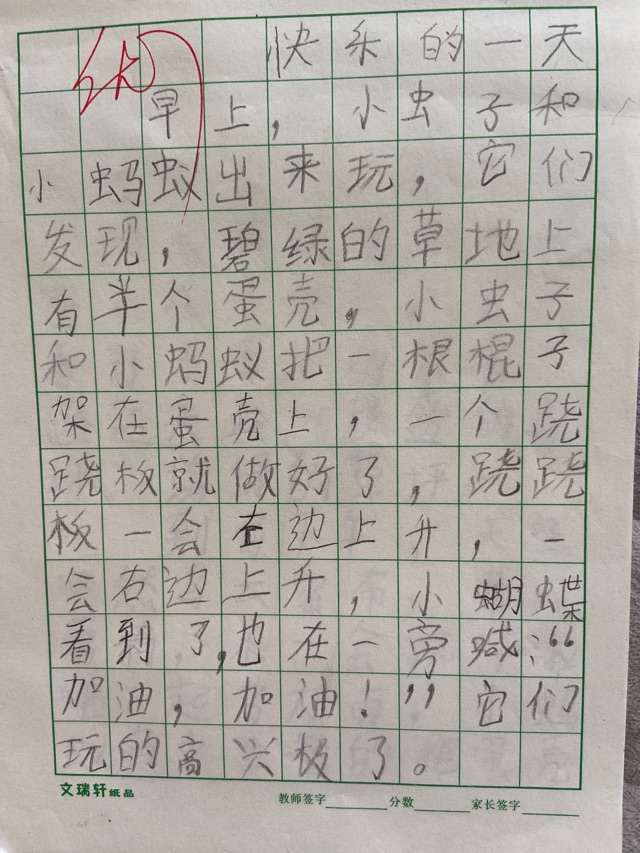 快乐的一天
早上，小虫子和
小蚂蚁出来玩，它们
发现，碧绿的草地上
有半个蛋壳，小虫子
和小蚂蚁把一根棍子
架在蛋壳上，一个跷
跷板就做好了，跷跷
板一会左边上升，一
会右边上升，小蝴蝶
看到了，也在一旁喊：“
加油，加油！”它们
玩的高兴极了。
文瑞轩纸品 教师签字 分数 家长签字